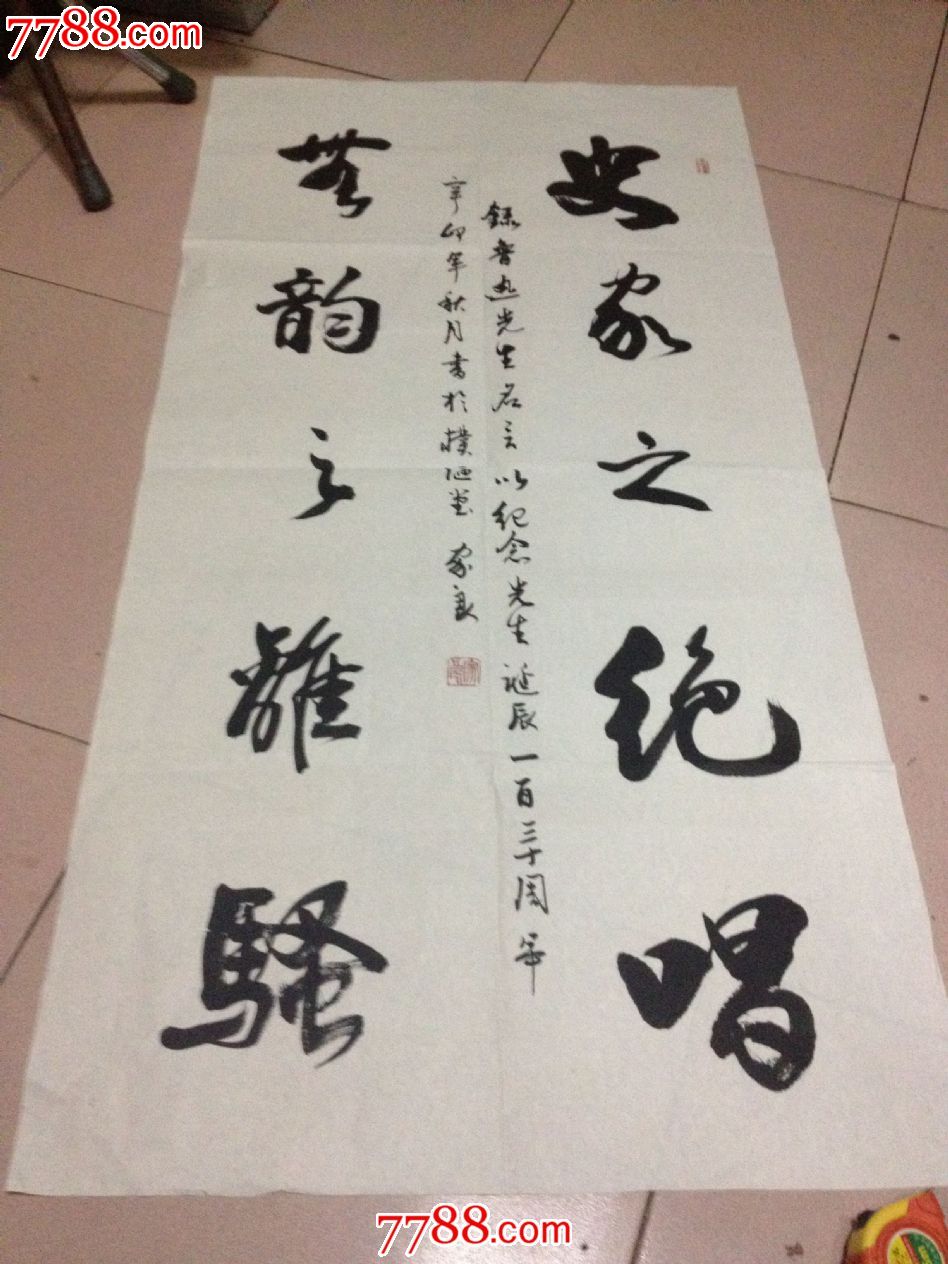 7788.com
史家之绝唱
錄魯迅先生名言以纪念先生诞辰一百三十周年
辛卯年秋月書於樸陋堂 家良
無韵之離騷
7788.com